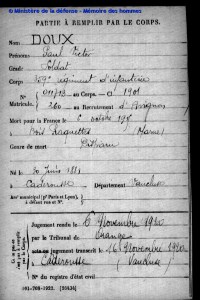 © Ministère de la défense - Mémoire des hommes
PARTIE À REMPLIR PAR LE CORPS.
Nom: DOUX
Prénoms: Paul Victor
Grade: Soldat
Corps: régiment d'infanterie
N° au Corps. — Cl. 1901
Matricule. 260 au Recrutement d'Avignon
Mort pour la France le 6 octobre 1915
à (Marne)
Genre de mort
Né le 30 Juin 1881
à Caderousse Département Vaucluse
Arrᵗ municipal (pʳ Paris et Lyon),
à défaut rue et N°.
Jugement rendu le 6 Novembre 1920
par le Tribunal de Orange
jugement transcrit le 16 Novembre 1920
à Caderousse (Vaucluse)
N° du registre d'état civil
101-708-1922. [26434]